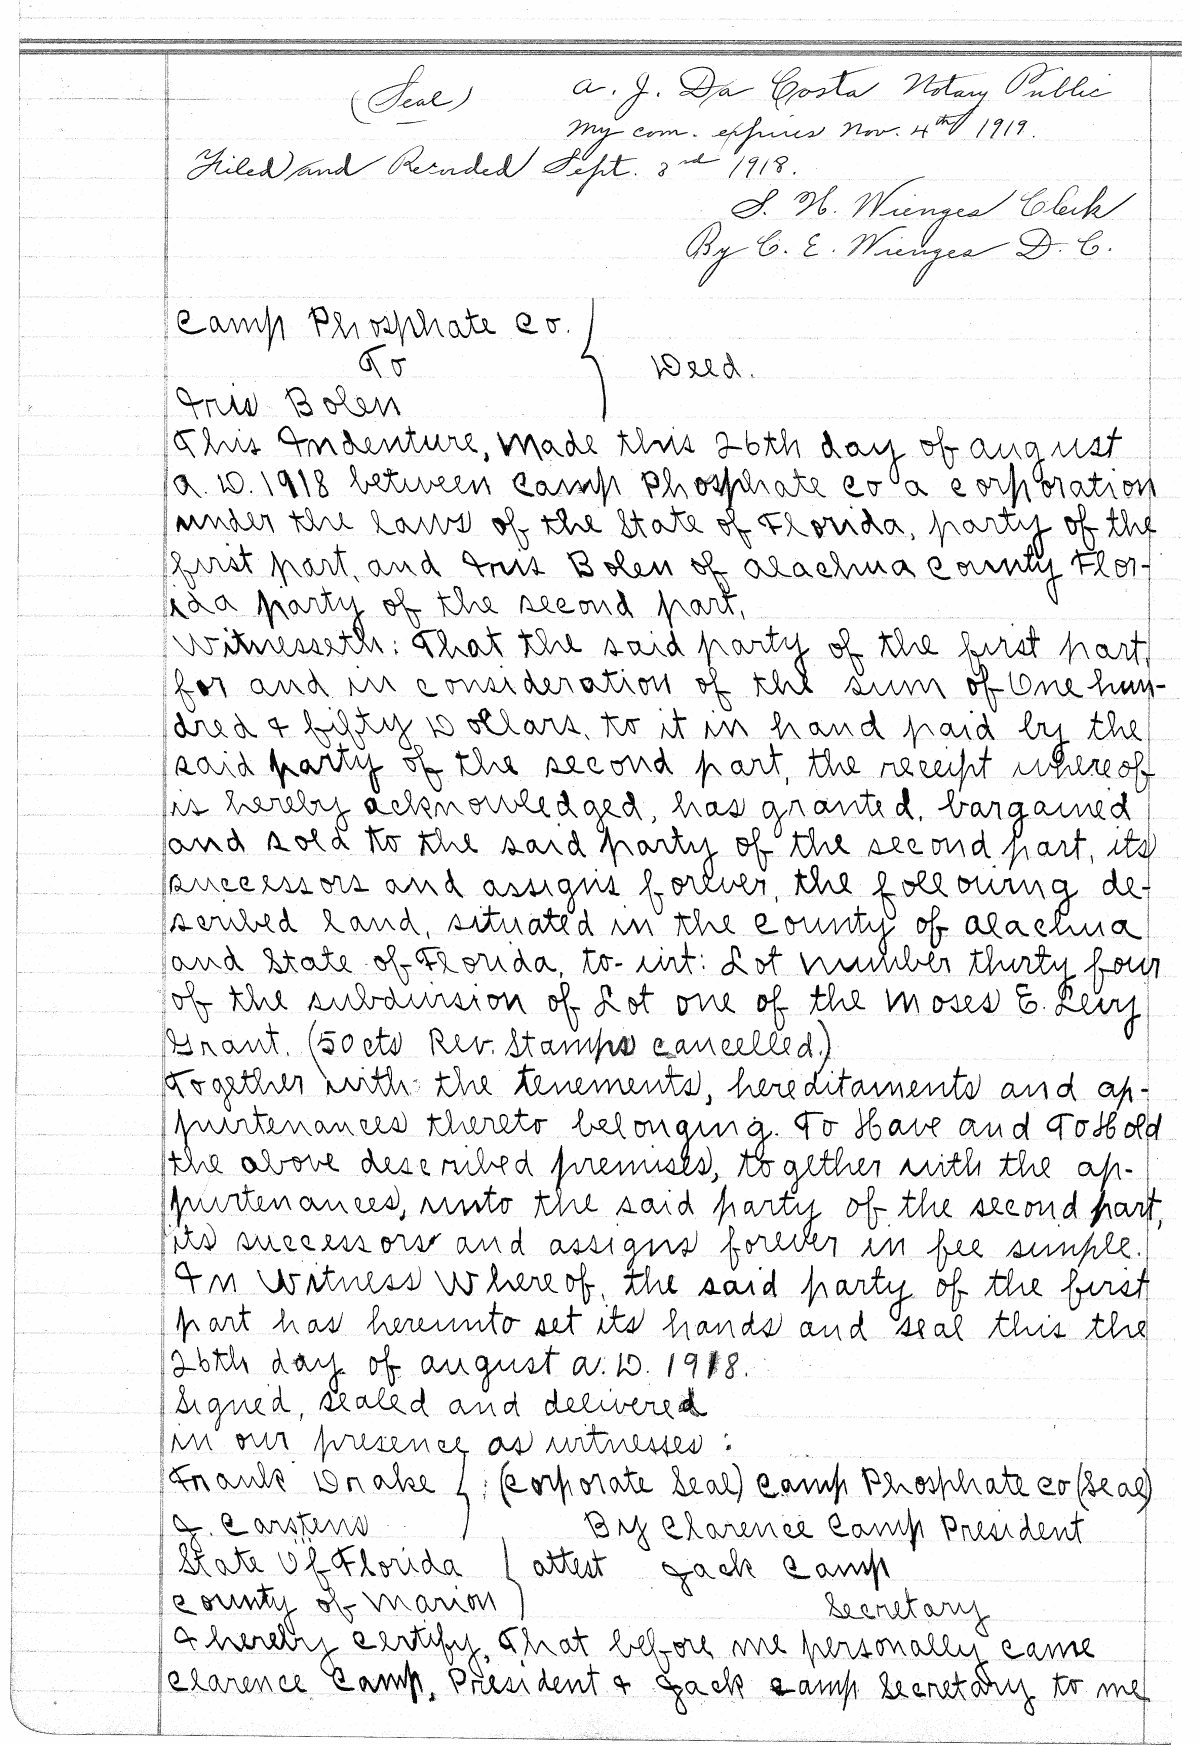 (Seal) A. J. Da Costa Notary Public
My com. expires Nov. 4th 1919.
Filed and Recorded Sept. 3rd 1918.
S. H. Wienges Clerk
By C. E. Wienges D. C.
Camp Phosphate Co.
To
Deed.
Iris Bolen
This Indenture, Made this 26th day of august
A. D. 1918 between Camp Phosphate Co a corporation
under the laws of the State of Florida, party of the
first part, and Iris Bolen of Alachua County Flor-
ida party of the second part,
Witnesseth: That the said party of the first part,
for and in consideration of the sum of One hun-
dred & fifty Dollars, to it in hand paid by the
said party of the second part, the receipt whereof
is hereby acknowledged, has granted, bargained
and sold to the said party of the second part, its
successors and assigns forever, the following de-
scribed land, situated in the County of Alachua
and State of Florida, to-wit: Lot number thirty four
of the subdivision of Lot one of the Moses E. Levy
Grant. (50cts Rev. Stamps cancelled.)
Together with the tenements, hereditaments and ap-
purtenances thereto belonging. To Have and To Hold
the above described premises, together with the ap-
purtenances, unto the said party of the second part,
its successors and assigns forever in fee simple.
In Witness Whereof, the said party of the first
part has hereunto set its hands and seal this the
26th day of august A. D. 1918.
Signed, sealed and delivered
in our presence as witnesses:
Frank Drake (Corporate Seal) Camp Phosphate Co (Seal)
J. Carstens By Clarence Camp President
State of Florida attest Jack Camp
County of Marion Secretary
I hereby certify, That before me personally came
Clarence Camp, President & Jack Camp Secretary to me